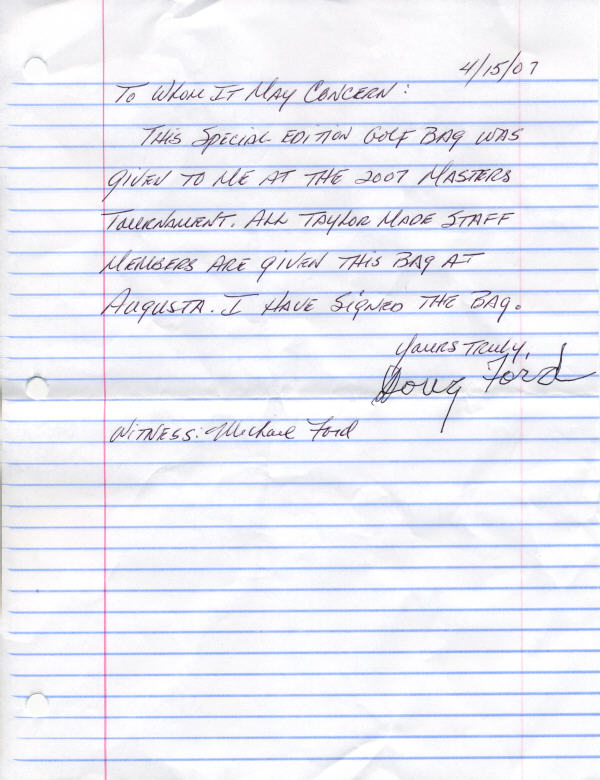 4/15/07
To Whom It May Concern:
This Special Edition Golf Bag was
given to me at the 2007 Masters
Tournament. All Taylor Made Staff
Members are given this Bag at
Augusta. I have signed the Bag.
Yours Truly,
Doug Ford
Witness: Michael Ford